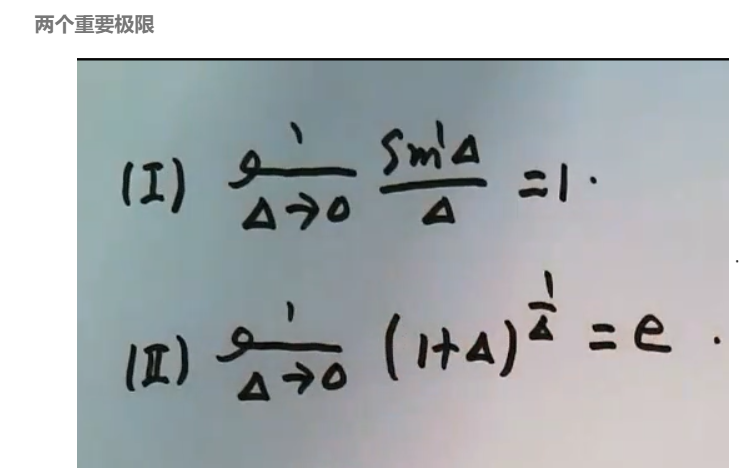 两个重要极限
(I) lim Δ→0 sinΔ/Δ = 1.
(II) lim Δ→0 (1+Δ)^(1/Δ) = e.